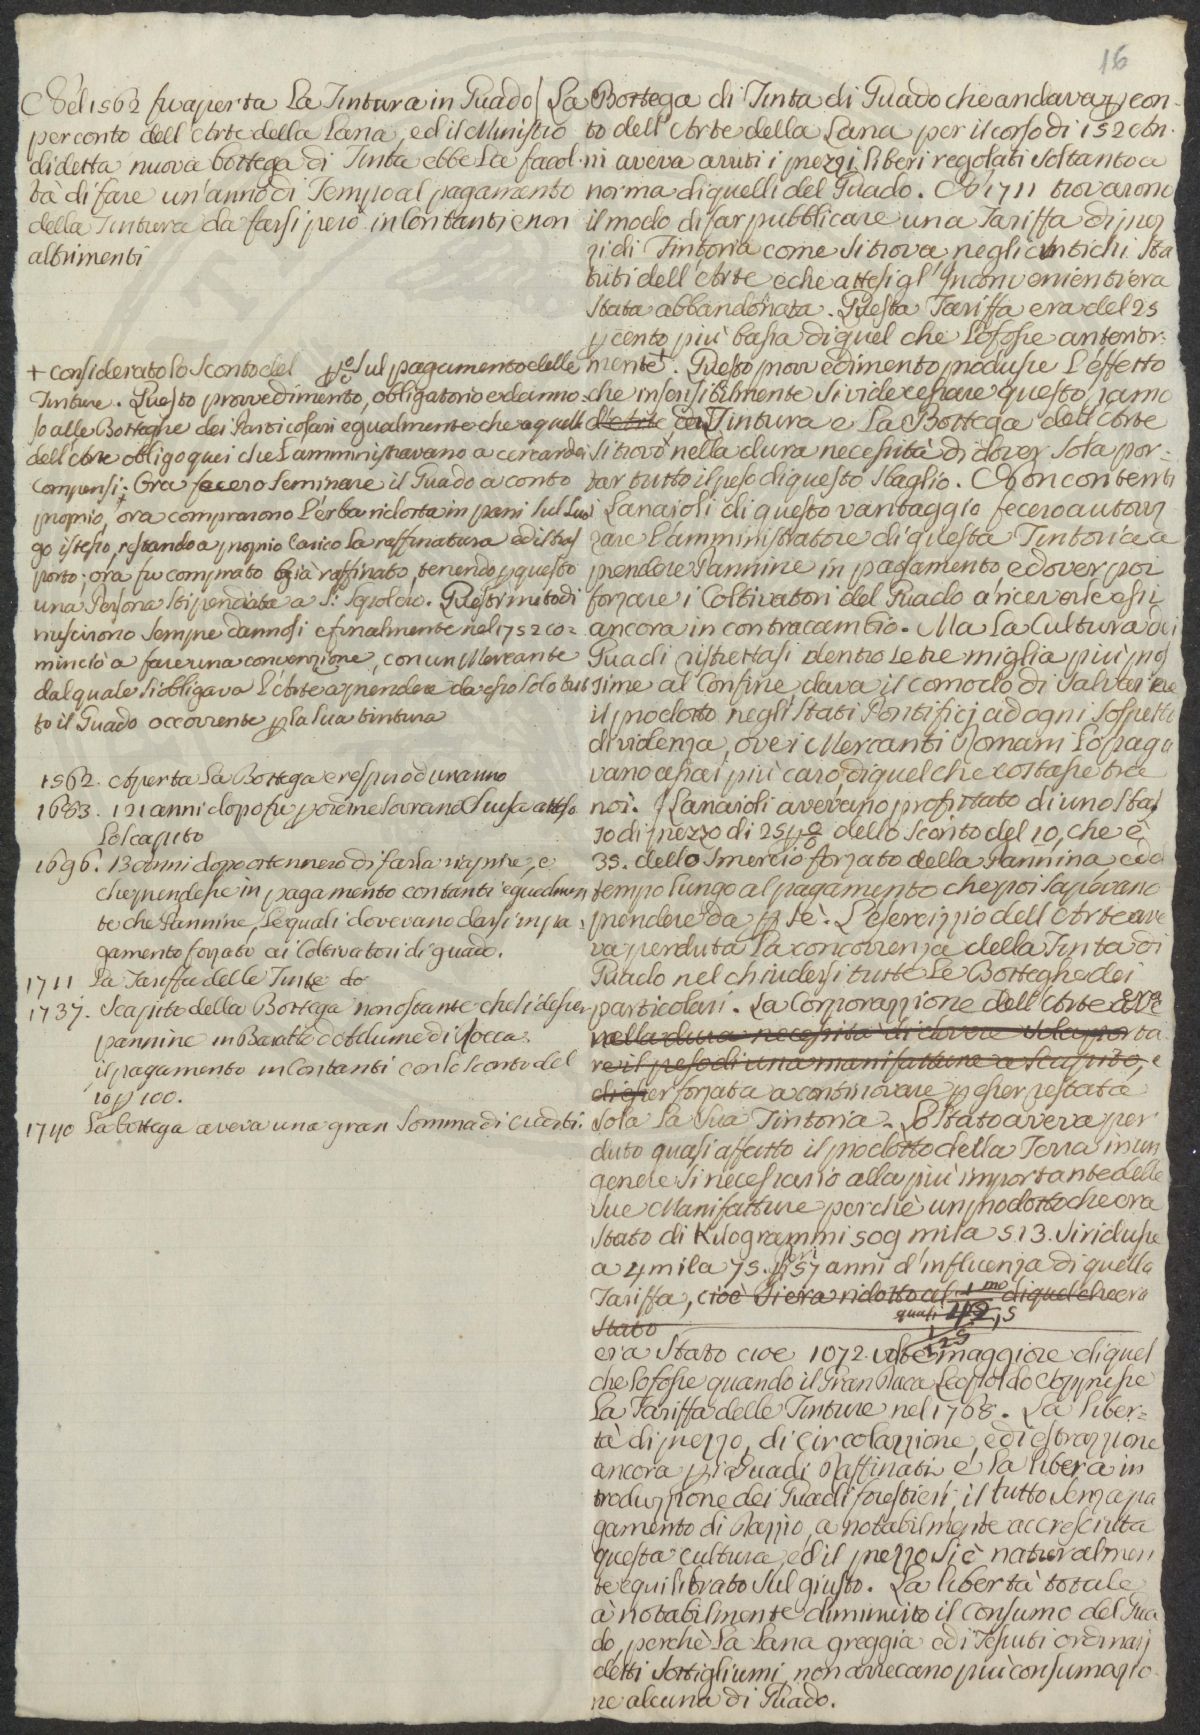 16
Nel 1562 fu aperta La Tintura in Guado
per conto dell'Arte della Lana, ed il Ministro
di detta nuova bottega di Tinta ebbe La facol-
tà di fare un'anno di Tempo al pagamento
della Tintura da farsi però in Contanti e non
altrimenti
+ considerato lo Sconto del p % sul pagamento delle
Tinture. Questo provvedimento, obligatorio e danno-
so alle Botteghe dei Particolari egualmente che a quelle
dell'Arte obligò quei che L'amministravano a cercar dei
Compensi; Ora fecero Seminare il Guado a conto
proprio, ora comprarono L'erba ridotta in pani sul Luo
go istesso, restando a proprio Carico La raffinatura ed il tras
porto; ora fu comprato già raffinato, tenendo p questo
una Persona stipendiata a S: Sepolcro. Questi metodi
riuscirono sempre dannosi e finalmente nel 1752 co-
minciò a fare una convenzione, con un Mercante
dal quale si obligava L'Arte a prendere da esso solo tut
to il Guado occorrente p la sua tintura
1562. Aperta La Bottega e respirò di un anno
1683. 121 anni dopo fu p ordine sovrano chiusa atteso
Lo Scapito
1696. 13 anni dopo ottennero di farla riaprire, e
che prendesse in pagamento contanti egualmen
te che Pannine, Le quali dovevano darsi in pa-
gamento forzato ai Coltivatori di guado.
1711 La Tariffa delle Tinte do
1737. Scapito della Bottega nonostante che si desser
pannine in Baratto ed Allume di Rocca
il pagamento in Contanti con lo Sconto del
10 p 100.
1740 La bottega aveva una gran Somma di crediti.
La Bottega di Tinta di Guado che andava p con-
to dell'Arte della Lana per il corso di 152 An-
ni aveva avuti i prezzi Liberi regolati soltanto a
norma di quelli del Guado. Nel 1711 trovarono
il modo di far pubblicare una Tariffa di prez
zi di Tintoria come si trova negli Antichi Sta
tuti dell'Arte e che attesi gl'Inconvenienti era
Stata abbandonata. Questa Tariffa era del 25
p cento più bassa di quel che Lo fosse anterior-
mente. Questo provvedimento produsse L'effetto
che insensibilmente si vide cessare questo ramo
di Tintura e La Bottega dell'Arte
si trovò nella dura necessità di dover sola por-
tar tutto il peso di questo Sbaglio. Non contenti
i Lanaioli di questo vantaggio fecero autoriz
zare L'amministratore di questa Tintoria a
prendere Pannine in pagamento e dover poi
forzare i Coltivatori del Guado a riceverle essi
ancora in contracambio. Ma La Cultura dei
Guadi ristrettasi dentro Le tre miglia più pros
sime al Confine dava il comodo di Salvar ne
il prodotto negli Stati Pontificj ad ogni sospetto
di videnza, ove i Mercanti Romani Lo paga
vano assai più caro, di quel che costasse tra
noi. I Lanaioli avevano profittato di uno sbas
so di prezzo di 25 p % dello Sconto del 10, che è
35. dello Smercio forzato della Pannina, e del
tempo lungo al pagamento che poi sapevano
prendere da p se. L'esercizzio dell'Arte ave
va perduta La concorrenza della Tinta di
Guado nel chiudersi tutte Le Botteghe dei
particolari. La Corporazzione dell'Arte era
nella dura necessità di dovere sola porta
re il peso di una manifatture a Scapito, e
di esser forzata a continovare p esser restata
sola La Sua Tintoria. Lo Stato aveva per
duto quasi affatto il prodotto della Terra in un
genere si necessario alla più importante delle
sue Manifatture perchè un prodotto che era
Stato di Kilogrammi 509 mila 513. si ridusse
a 4 mila 75. p 57 anni d'influenza di quella
Tariffa, cioè si era ridotto al 1 mo di quel che era
quasi 112,5
Stato 125
era Stato cioe 1072. volte maggiore di quel
che Lo fosse quando il Gran Duca Leopoldo Soppresse
La Tariffa delle Tinture nel 1768. La liber-
tà di prezzo, di circolazzione, ed estrazzione
ancora p i Guadi Raffinati e La libera in
troduzzione dei Guadi forestieri, il tutto senza pa
gamento di Dazzio, à notabilmente accresciuta
questa cultura, ed il prezzo si è naturalmen
te equilibrato sul giusto. La libertà totale
à notabilmente diminuito il Consumo del Gua
do, perchè La Lana greggia ed i Tessuti ordinarj
detti sottigliumi, non arrecano più consumazio
ne alcuna di Guado.